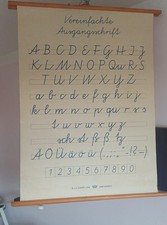 Vereinfachte
Ausgangsschrift
A B C D E F G H I J
K L M N O P Qu R S
T U V W X Y Z
a b c d e f g h i j
k l m n o p qu r s
t u v w x y z
sch st ß tz
Ä Ö Ü ä ö ü (....,"!?-)
1 2 3 4 5 6 7 8 9 0